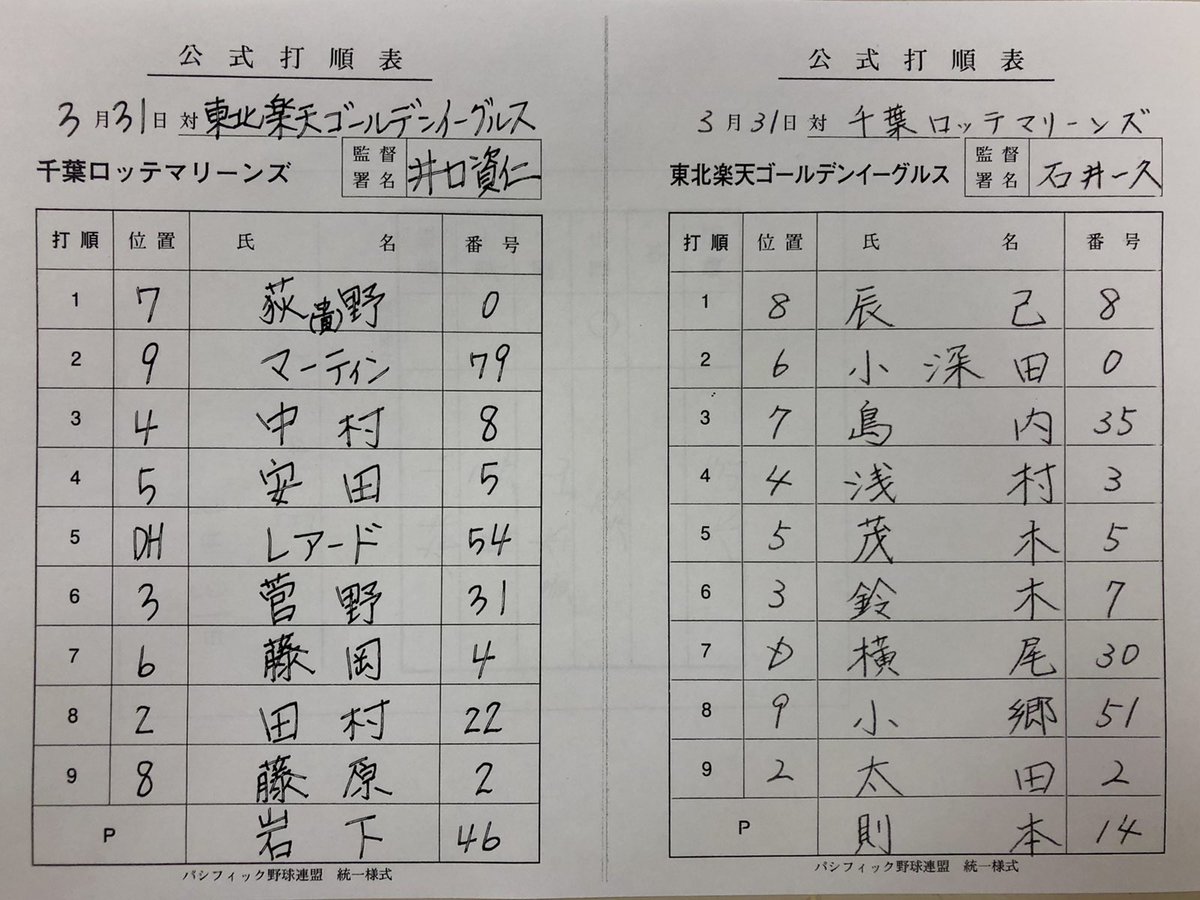 公式打順表
3月31日 対 東北楽天ゴールデンイーグルス
千葉ロッテマリーンズ 監督署名 井口資仁
打順 位置 氏名 番号
1 7 荻野(貴) 0
2 9 マーティン 79
3 4 中村 8
4 5 安田 5
5 DH レアード 54
6 3 菅野 31
7 6 藤岡 4
8 2 田村 22
9 8 藤原 2
P 岩下 46
パシフィック野球連盟 統一様式
公式打順表
3月31日 対 千葉ロッテマリーンズ
東北楽天ゴールデンイーグルス 監督署名 石井一久
打順 位置 氏名 番号
1 8 辰己 8
2 6 小深田 0
3 7 島内 35
4 4 浅村 3
5 5 茂木 5
6 3 鈴木 7
7 横尾 30
8 9 小郷 51
9 2 太田 2
P 則本 14
パシフィック野球連盟 統一様式